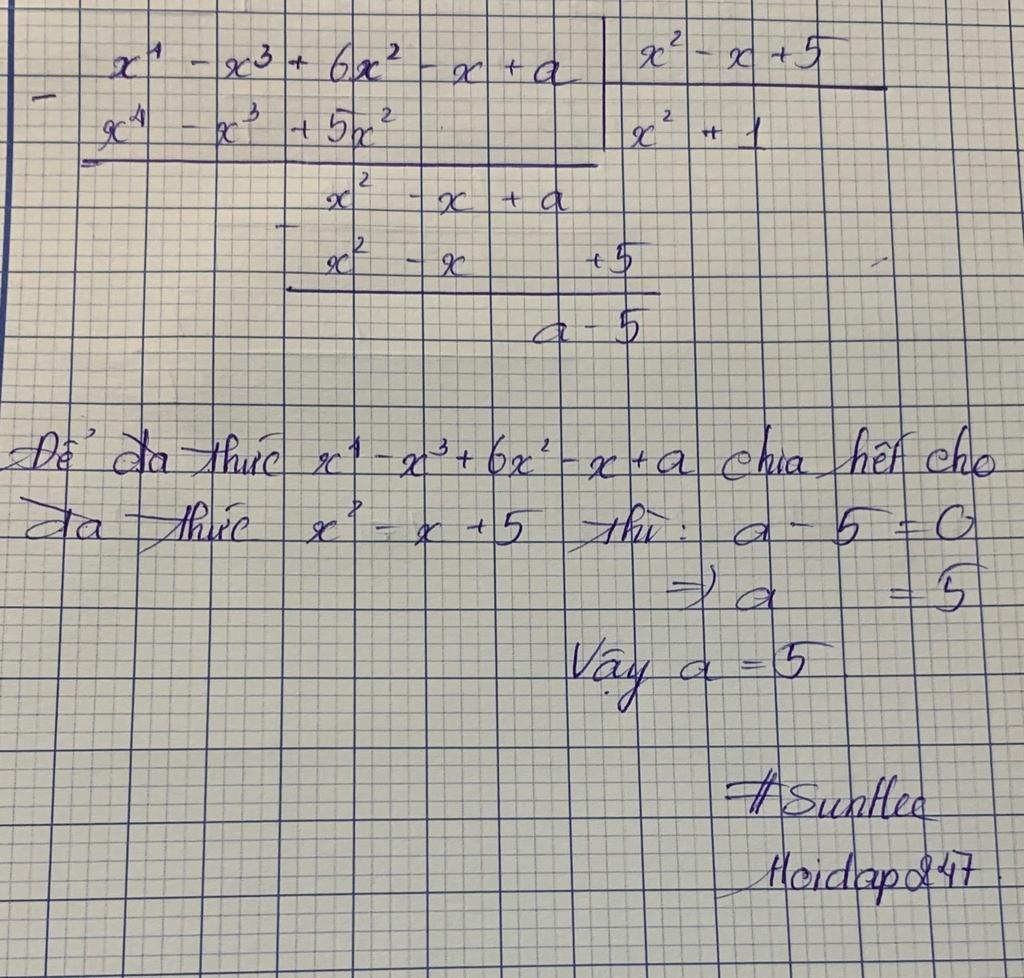 x⁴ - x³ + 6x² - x + a | x² - x + 5
- x⁴ - x³ + 5x² | x² + 1
x² - x + a
- x² - x + 5
a - 5
Để đa thức x⁴ - x³ + 6x² - x + a chia hết cho
đa thức x² - x + 5 thì: a - 5 = 0
=> a = 5
Vậy a = 5
#SunHee
Hoidap247